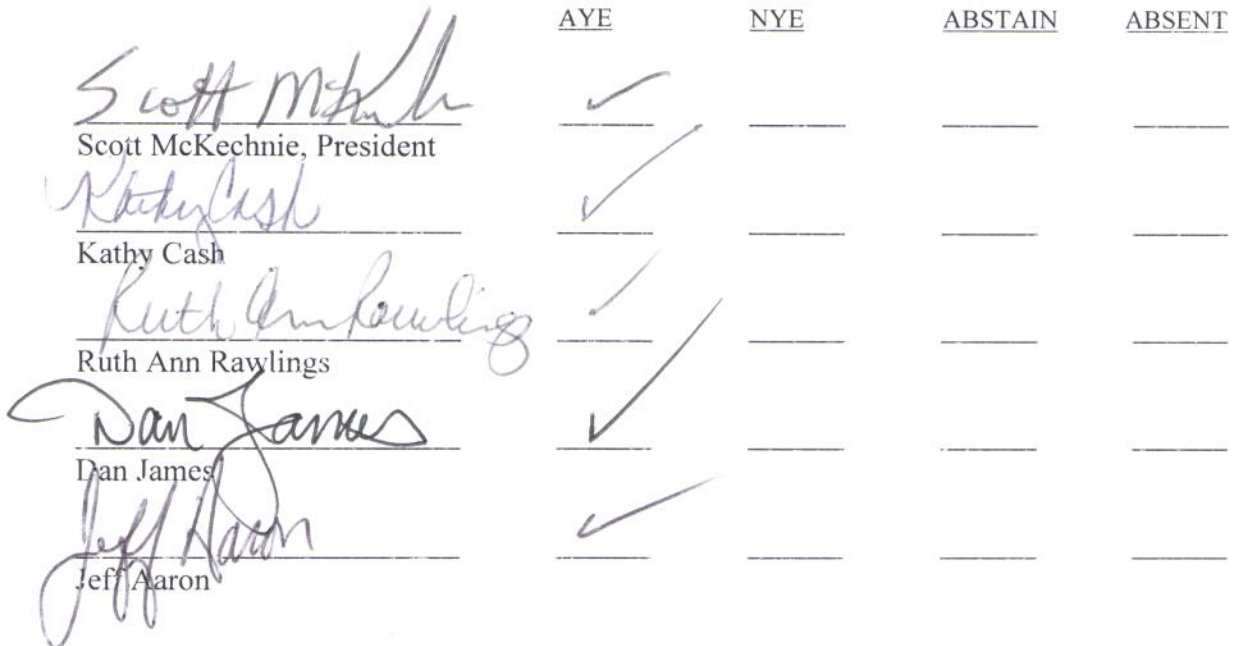 AYE NYE ABSTAIN ABSENT
Scott
✓
Scott McKechnie, President
Kathy Cash
✓
Kathy Cash
Ruth Ann Rawlings
✓
Ruth Ann Rawlings
Dan James
✓
Dan James
Jeff Aaron
✓
Jeff Aaron